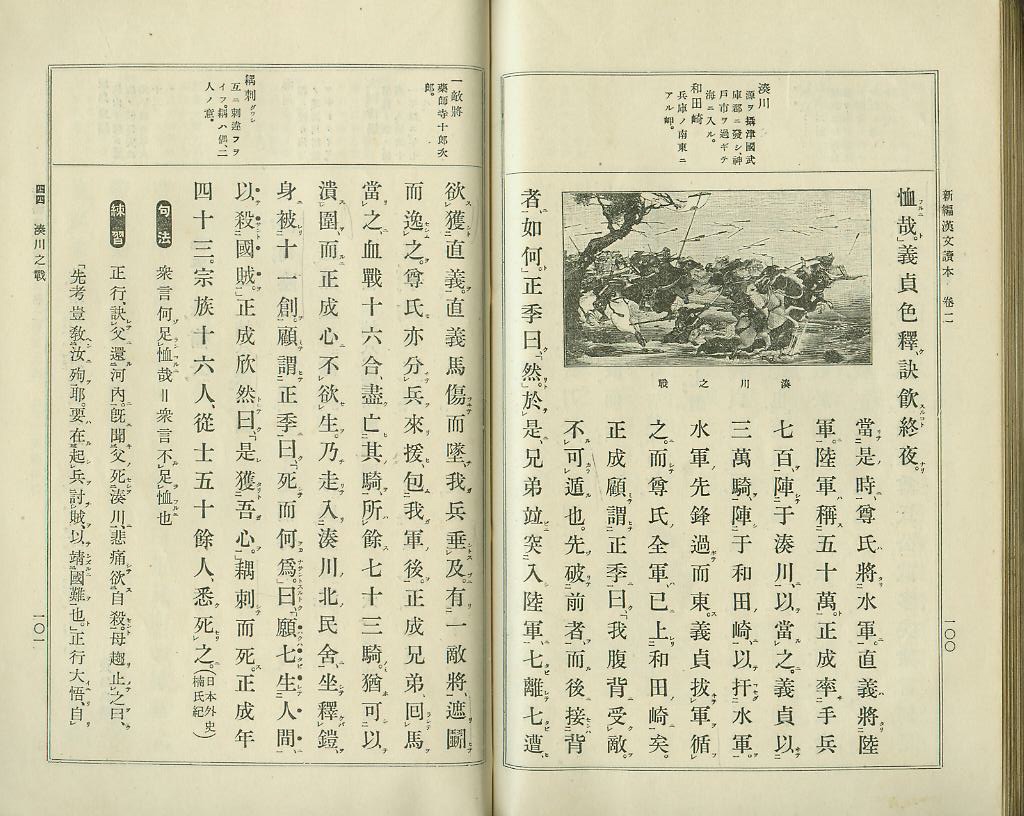 新編漢文讀本 卷二
一〇〇
湊川
源ヲ攝津國武
庫郡ニ發シ、神
戸市ヲ過ギテ
海ニ入ル。
和田崎
兵庫ノ南東ニ
アル岬。
恤哉。」義貞色釋、訣飲終夜。
當是時、尊氏將水軍。直義將陸
軍。陸軍稱五十萬。正成率手兵
七百、陣于湊川、以當之。義貞以
三萬騎、陣于和田崎、以扞水軍。
水軍先鋒過而東。義貞拔軍循
之。而尊氏全軍已上和田崎矣。
正成顧謂正季曰、「我腹背受敵。
不可遁也。先破前者、而後接背
者、如何。」正季曰、「然。」於是、兄弟竝突入陸軍、七離七遭、
湊川之戰
一敵將
藥師寺十郎次
郎。
耦刺
互ニ刺違フヲ
イフ。耦ハ偶、二
人ノ意。
欲獲直義。直義馬傷而墜。我兵垂及。有一敵將、遮鬭
而逸之。尊氏亦分兵來援、包我軍後。正成兄弟、回馬
當之、血戰十六合、盡亡其騎。所餘七十三騎。猶可以
潰圍、而正成心不欲生。乃走入湊川北民舍、坐釋鎧。
身被十一創。顧謂正季曰、「死而何爲。」曰、「願七生人間、
以殺國賊。」正成欣然曰、「是獲吾心。」耦刺而死。正成年
四十三。宗族十六人、從士五十餘人、悉死之。(日本外史 楠氏紀)
句法
衆言何足恤哉＝衆言不足恤也
練習
正行、訣父還河內。既聞父死湊川、悲痛欲自殺。母趨止之曰、
「先考豈敎汝殉耶。要在起兵討賊、以靖國難也。」正行大悟、自
四四 湊川之戰
一〇一